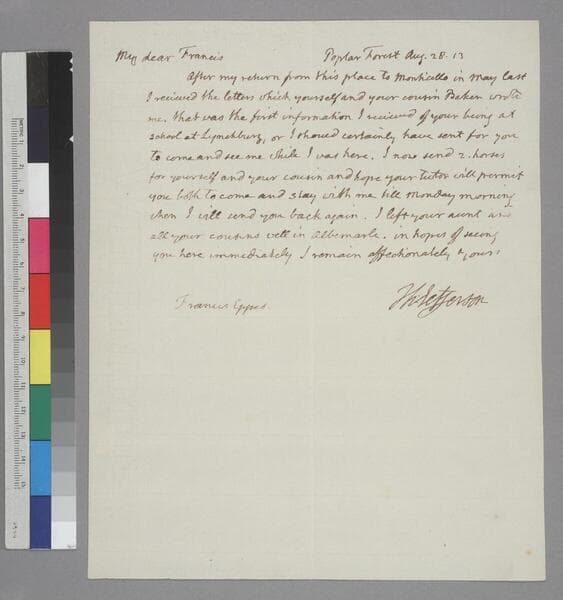 My dear Francis Poplar Forest Aug. 28. 13
After my return from this place to Monticello in May last
I recieved the letters which yourself and your cousin Baker wrote
me. that was the first information I recieved of your being at
school at Lynchburg, or I should certainly have sent for you
to come and see me while I was here. I now send 2. horses
for yourself and your cousin and hope your tutor will permit
you both to come and stay with me till Monday morning
when I will send you back again. I left your aunt and
all your cousins well in Albemarle. in hopes of seeing
you here immediately I remain affectionately yours
Th: Jefferson
Francis Eppes.